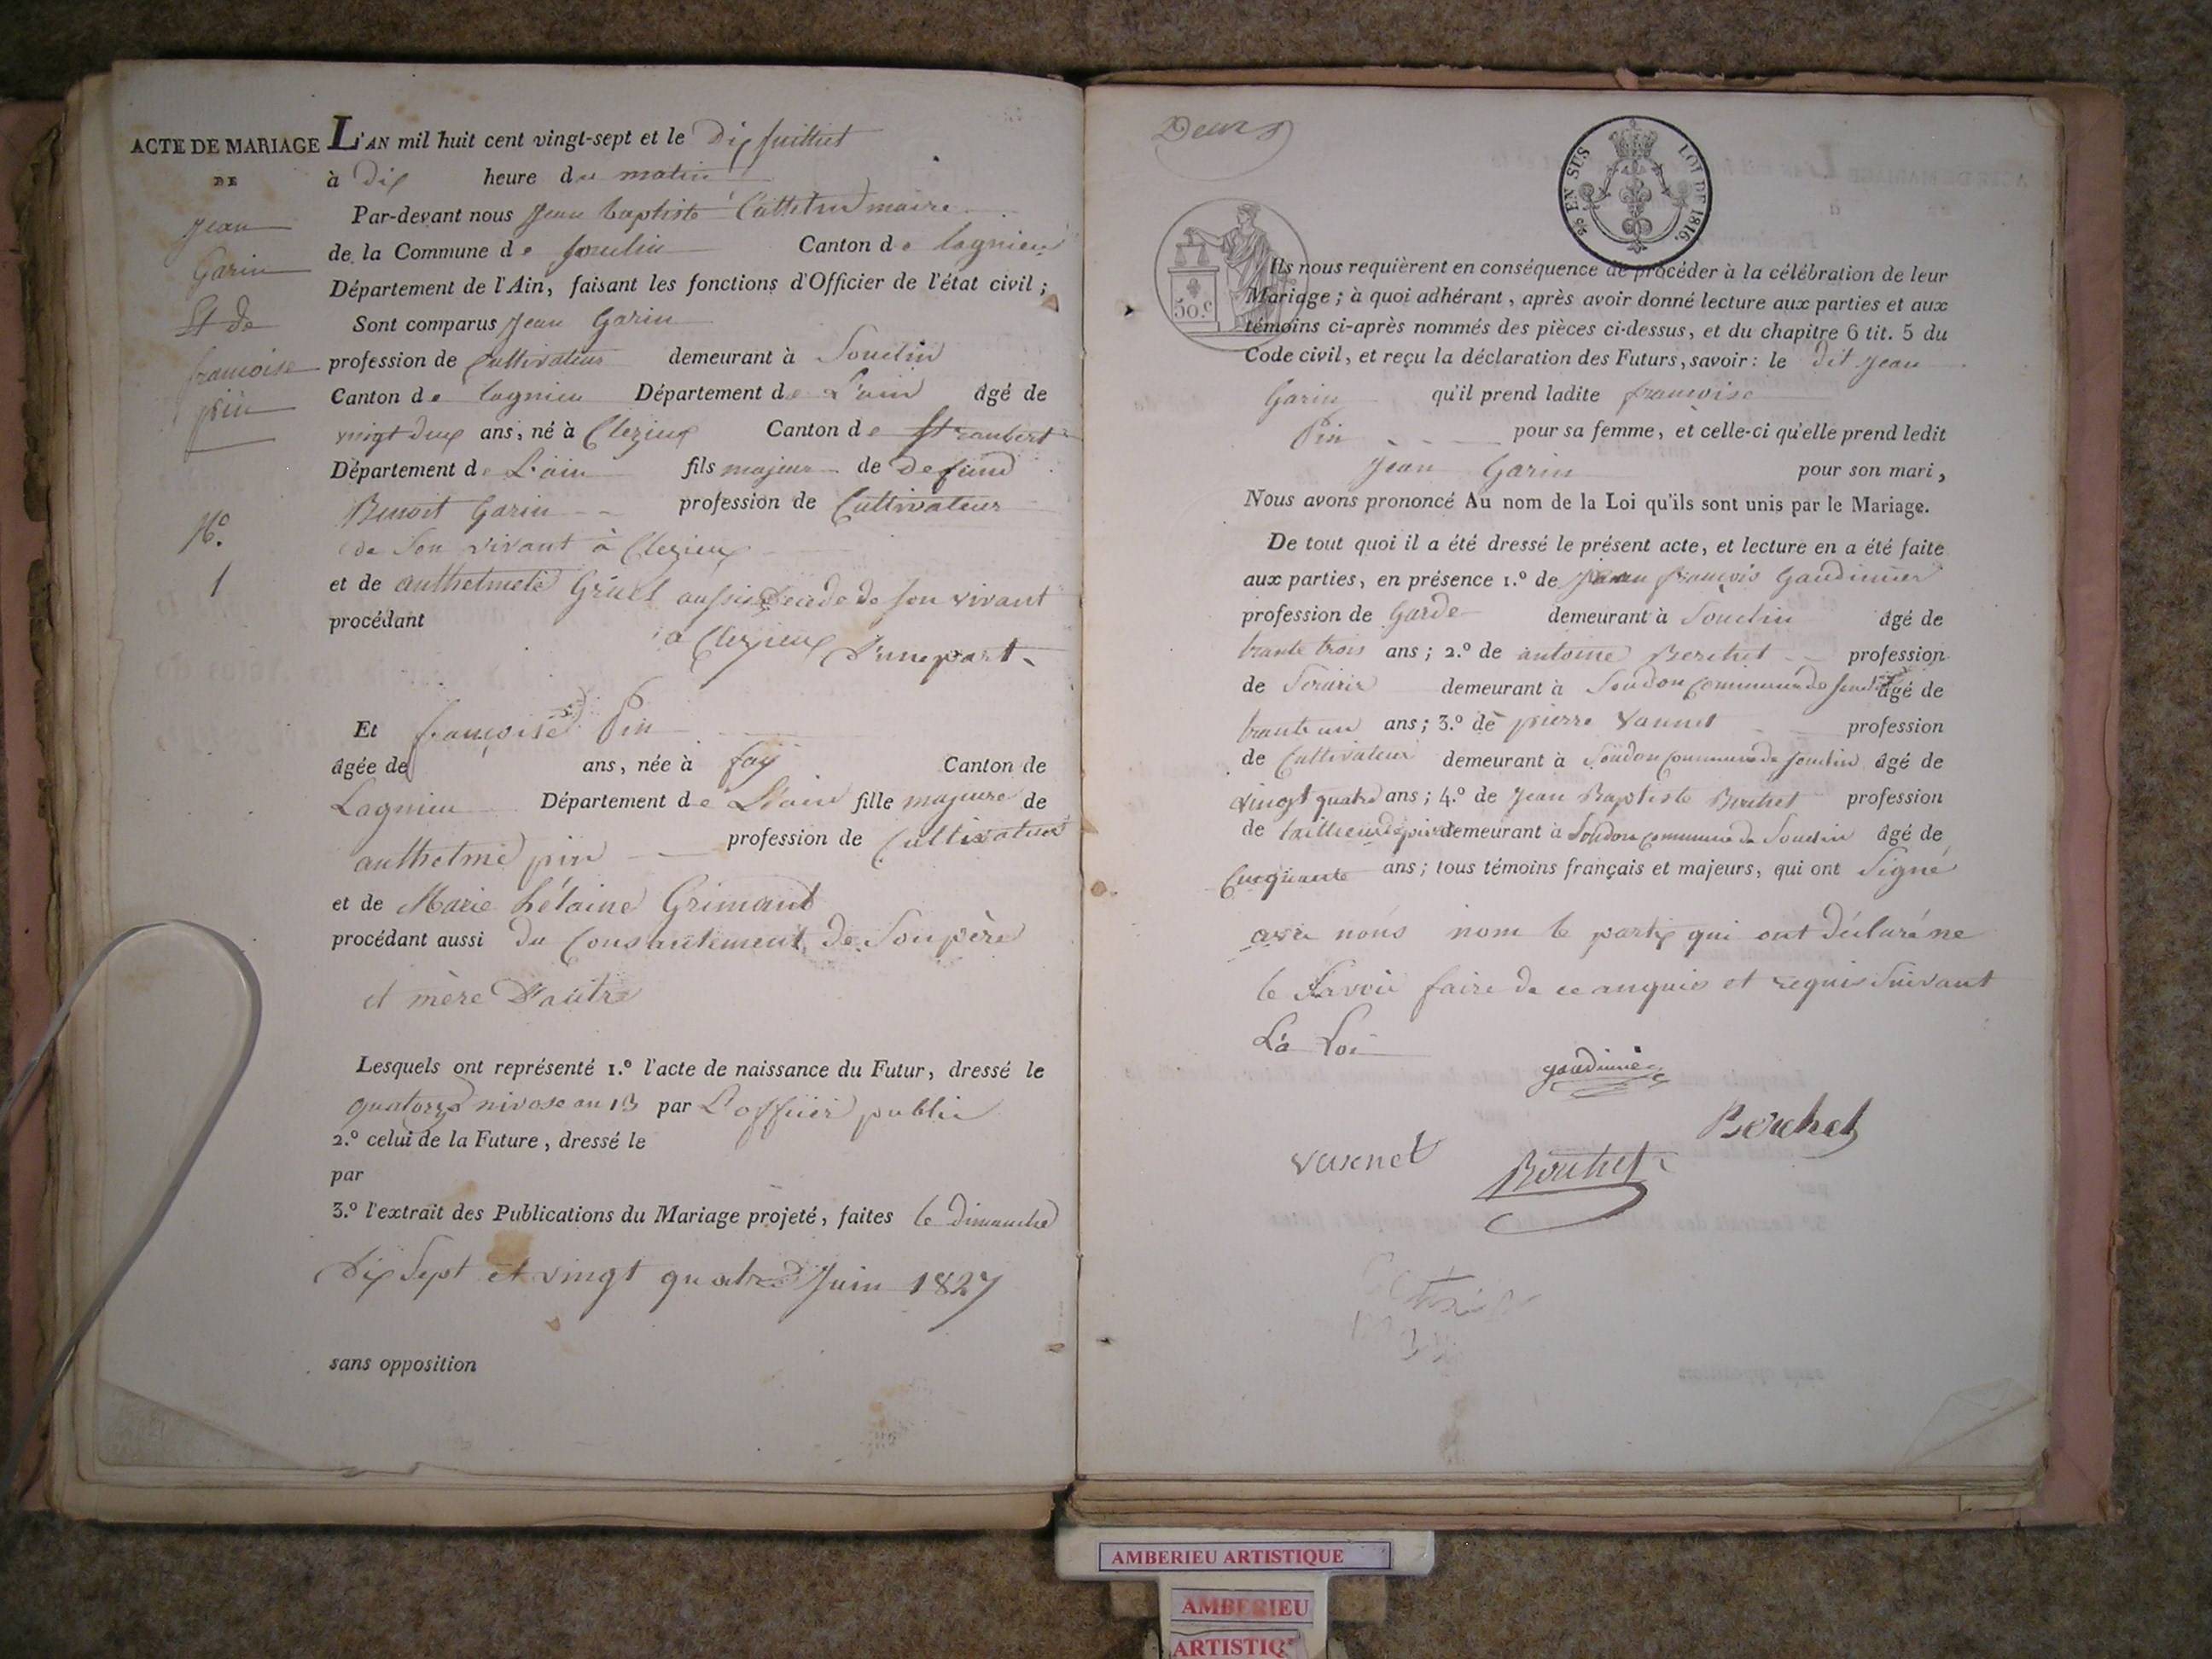 ACTE DE MARIAGE
DE
Jean
Garin
Et de
francoise
pin
N.o
1
L'AN mil huit cent vingt-sept et le Dix juilliet
à Dix heure du matin
Par-devant nous Jean baptiste maire
de la Commune de Souclin Canton de lagnieu
Département de l'Ain, faisant les fonctions d'Officier de l'état civil ;
Sont comparus Jean Garin
profession de Cultivateur demeurant à Souclin
Canton de lagnieu Département de L'ain âgé de
vingt deux ans, né à Clezieux Canton de St rambert
Département de L'ain fils majeur de defund
Benoit Garin profession de Cultivateur
de Son vivant à Clezieux
et de anthelmete Grüel aussi Decede de son vivant
procédant
à Clezieux D'une part
Et françoise Pin
âgée de ans, née à fay Canton de
Lagnieu Département de L'ain fille majeure de
anthelme pin profession de Cultivateur
et de Marie hélaine Grimand
procédant aussi du Consentement de Son père
et mère D'autre
Lesquels ont représenté 1.º l'acte de naissance du Futur, dressé le
quatorze nivose an 13 par L'officier public
2.º celui de la Future, dressé le
par
3.º l'extrait des Publications du Mariage projeté, faites le dimanche
Dix Sept et vingt quatre Juin 1827
sans opposition
Deux
EN SUS LOI DE 1816.
50.c
Ils nous requièrent en conséquence de procéder à la célébration de leur
Mariage ; à quoi adhérant, après avoir donné lecture aux parties et aux
témoins ci-après nommés des pièces ci-dessus, et du chapitre 6 tit. 5 du
Code civil, et reçu la déclaration des Futurs, savoir : le dit Jean
Garin qu'il prend ladite francoise
Pin pour sa femme, et celle-ci qu'elle prend ledit
Jean Garin pour son mari,
Nous avons prononcé Au nom de la Loi qu'ils sont unis par le Mariage.
De tout quoi il a été dressé le présent acte, et lecture en a été faite
aux parties, en présence 1.º de françois Gaudinier
profession de Garde demeurant à Souclin âgé de
trante trois ans ; 2.º de antoine Berchet profession
de demeurant à Soudon Commune de Souclin âgé de
trante un ans ; 3.º de pierre Vannet profession
de Cultivateur demeurant à Soudon Commune de Souclin âgé de
vingt quatre ans ; 4.º de Jean Baptiste Berchet profession
de demeurant à Soudon Commune de Souclin âgé de
Cinquante ans ; tous témoins français et majeurs, qui ont Signé
avec nous nom le partix qui ont déclaré ne
le Savoir faire de ce anquis et requis Suivant
La Loi
gaudinier
Berchet
vannet
Berthet
AMBERIEU ARTISTIQUE
AMBERIEU
ARTISTIQ